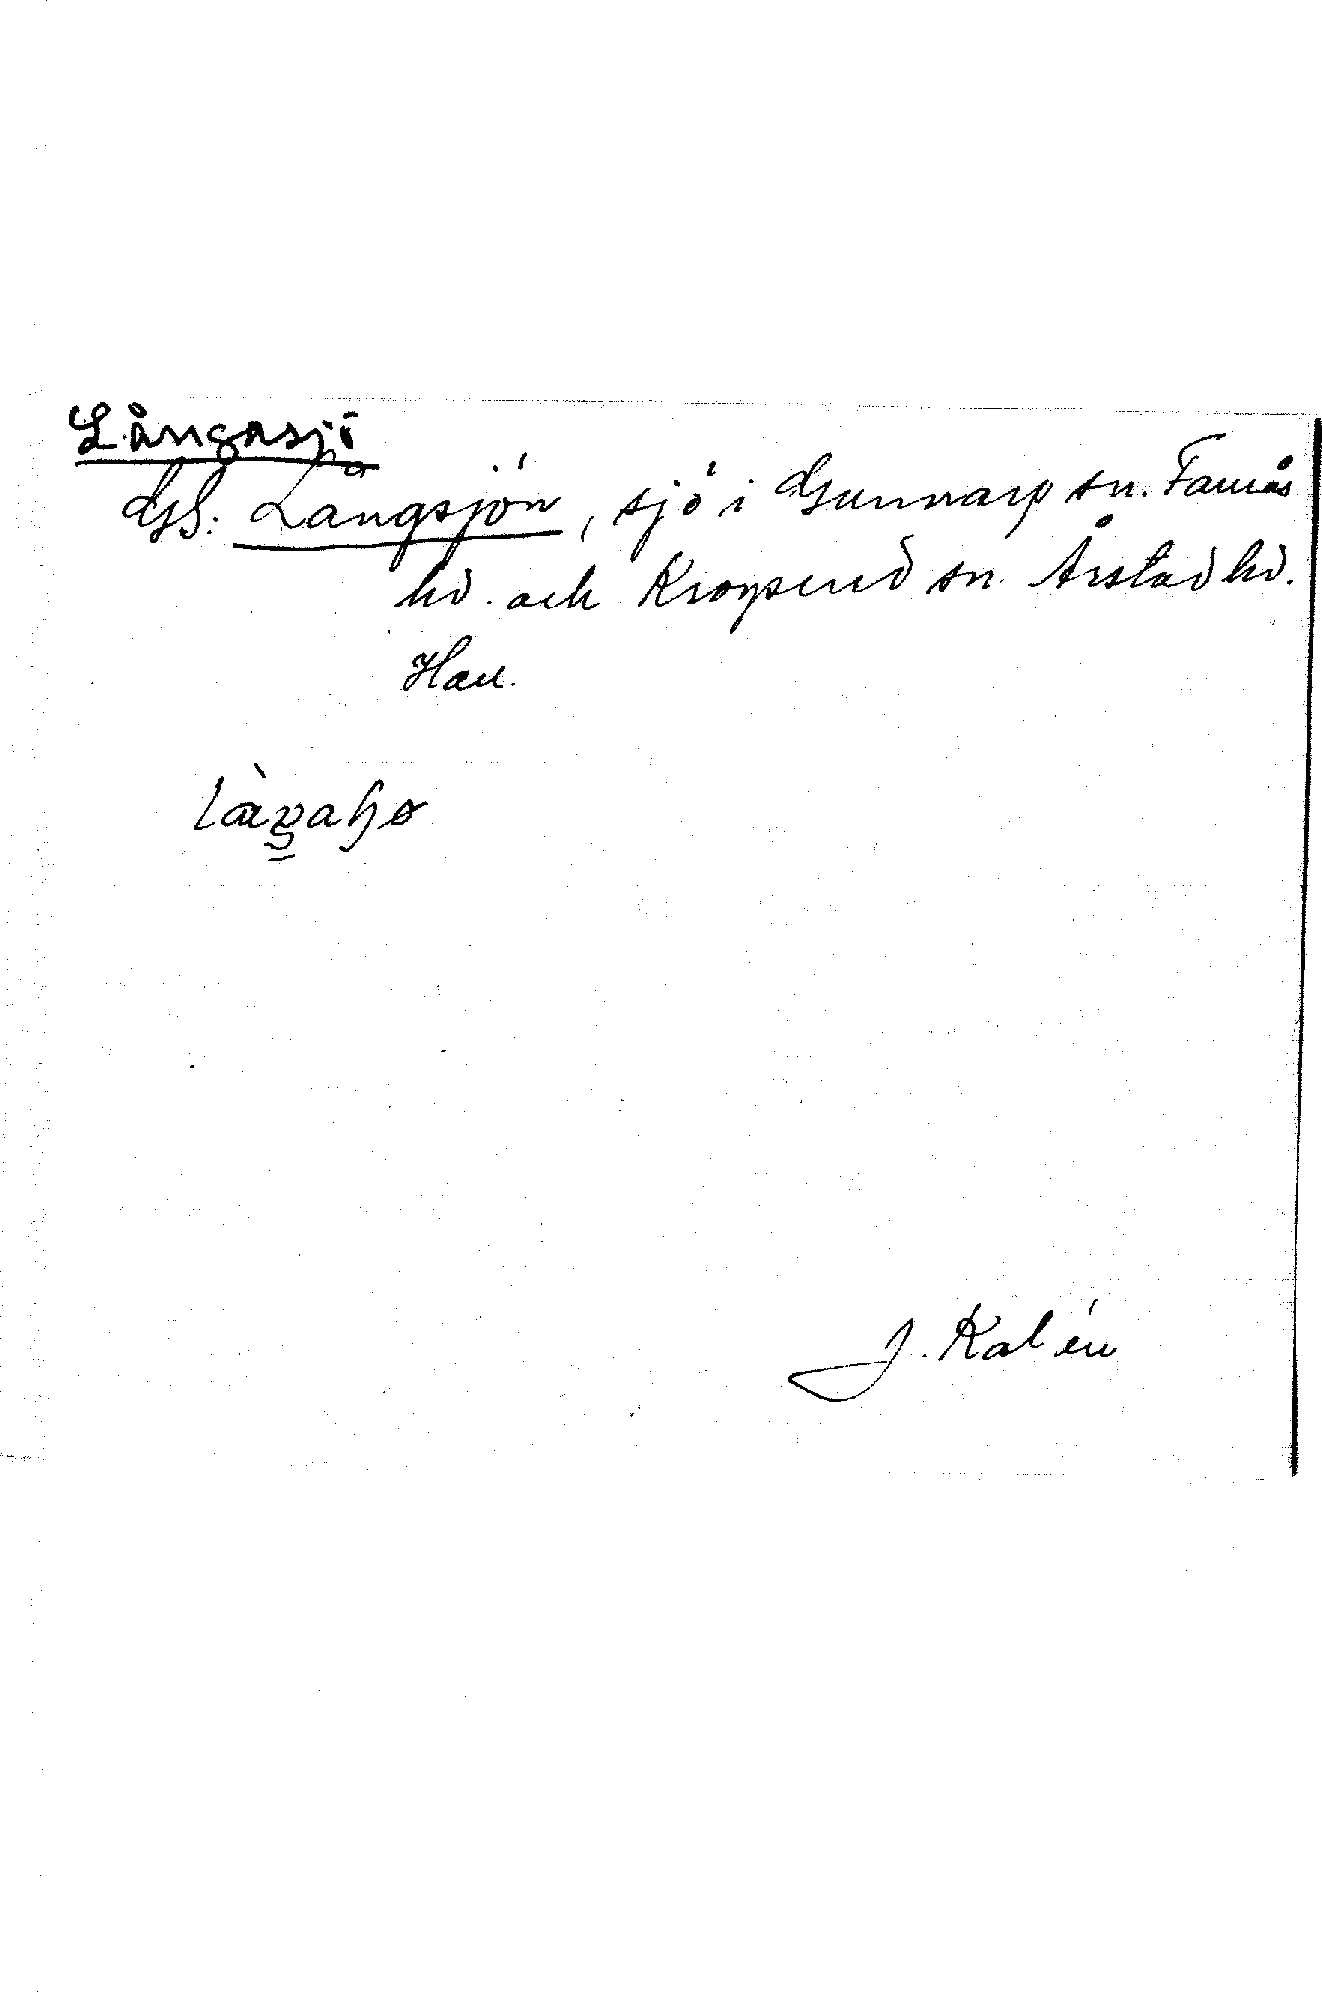 Långasjö
GS: Långsjön, sjö i Gunnarp sn. Faurås
hd. och Kropsered sn. Årstad hd.
Hall.
J. Kalén